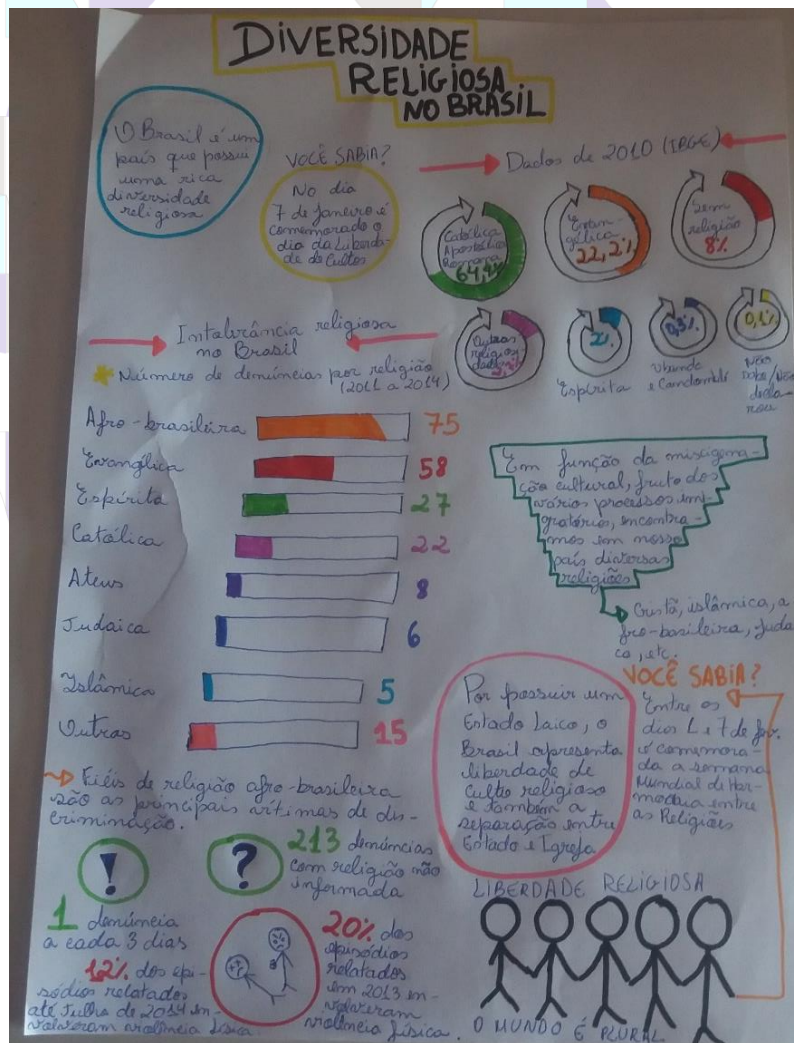 DIVERSIDADE
RELIGIOSA
NO BRASIL
O Brasil é um
país que possui
uma rica
diversidade
religiosa
VOCÊ SABIA?
No dia
7 de Janeiro é
comemorado o
dia da Liberda-
de de Cultos
Dados de 2010 (IBGE)
Católica
Apostólica
Romana
64,4%
Evan-
gélica
22,2%
Sem
religião
8%
Outras
religiosi-
dades
2%
Espírita
0,3%
Ubanda
e Candomblé
0,1%
Não
Sabe/Não
decla-
rou
Intolerância religiosa
no Brasil
Número de denúncias por religião
(2011 a 2014)
Afro-brasileira 75
Evangélica 58
Espírita 27
Católica 22
Ateus 8
Judaica 6
Islâmica 5
Outros 15
Em função da miscigena-
ção cultural, fruto dos
vários processos imi-
gratórios, encontra-
mos em nosso
país diversas
religiões
Cristã, islâmica, a
fro-basileira, juda
ca, etc.
Fiéis de religião afro-brasileira
são as principais vítimas de dis-
criminação.
! ?
213 denúncias
com religião não
informada
1 denúncia
a cada 3 dias
12% dos epi-
sódios relatados
até Julho de 2014 en-
volveram violência física.
20% dos
episódios
relatados
em 2013 en-
volveram
violência física.
Por possuir um
Estado Laico, o
Brasil apresenta
liberdade de
Culto religioso
e também a
separação entre
Estado e Igreja
VOCÊ SABIA?
Entre os
dias 1 e 7 de fev.
é comemora-
da a semana
Mundial de Har-
monia entre
as Religiões
LIBERDADE RELIGIOSA
O MUNDO É PLURAL